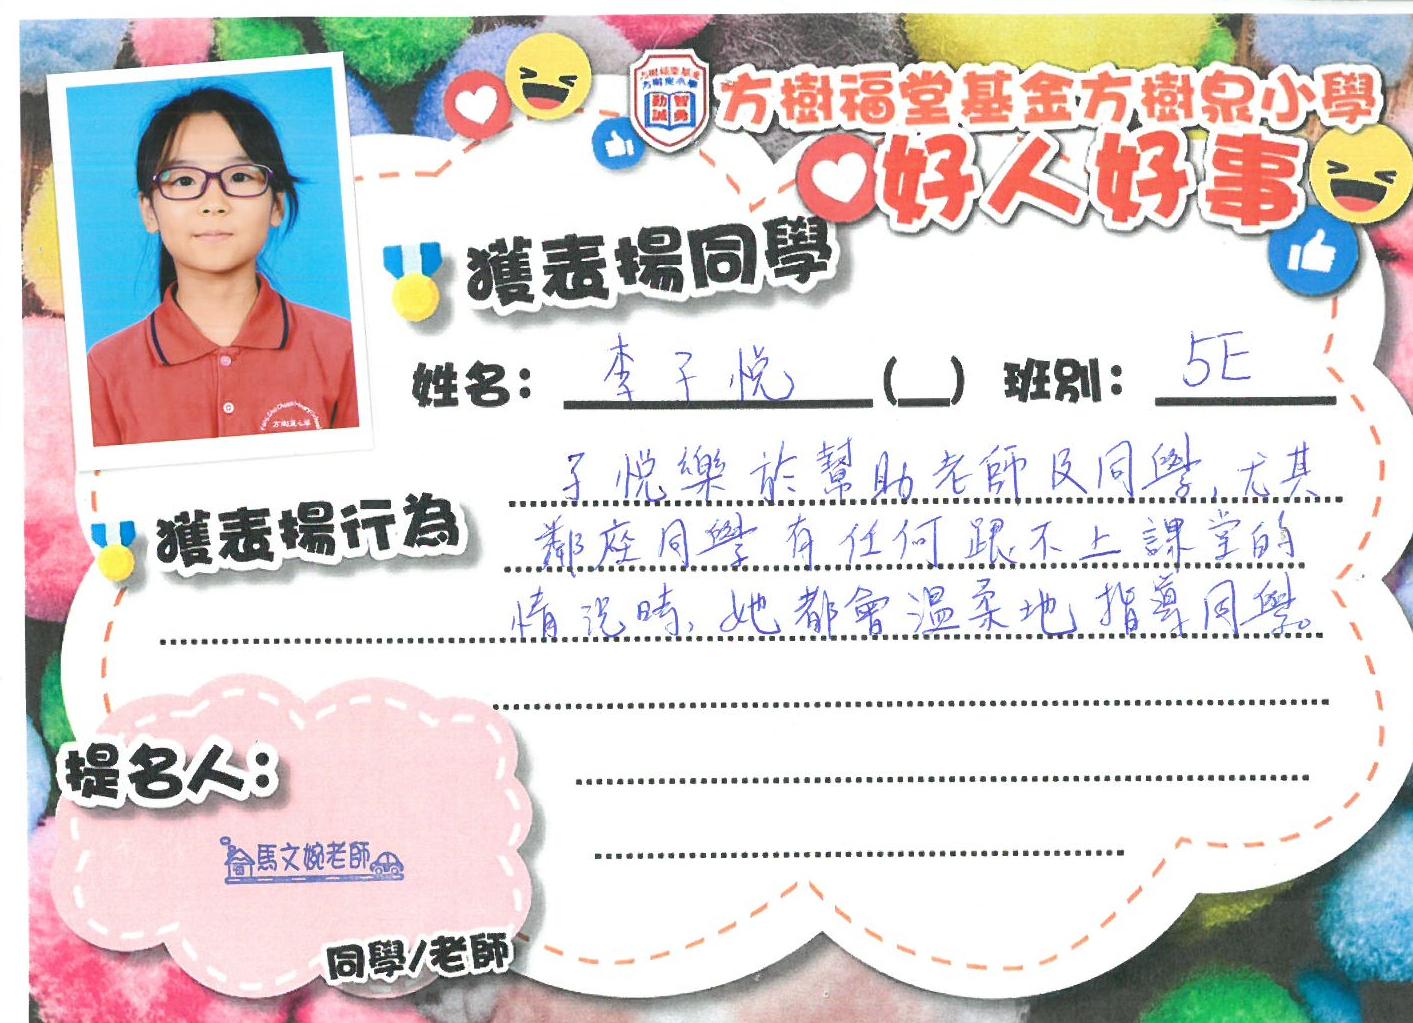 方樹福堂基金方樹泉小學
好人好事
獲表揚同學
姓名： 李子悦 (　) 班別： 5E
子悦樂於幫助老師及同學，尤其
獲表揚行為
鄰座同學有任何跟不上課堂的
情況時，她都會溫柔地指導同學。
提名人：
馬文婉老師
同學/老師